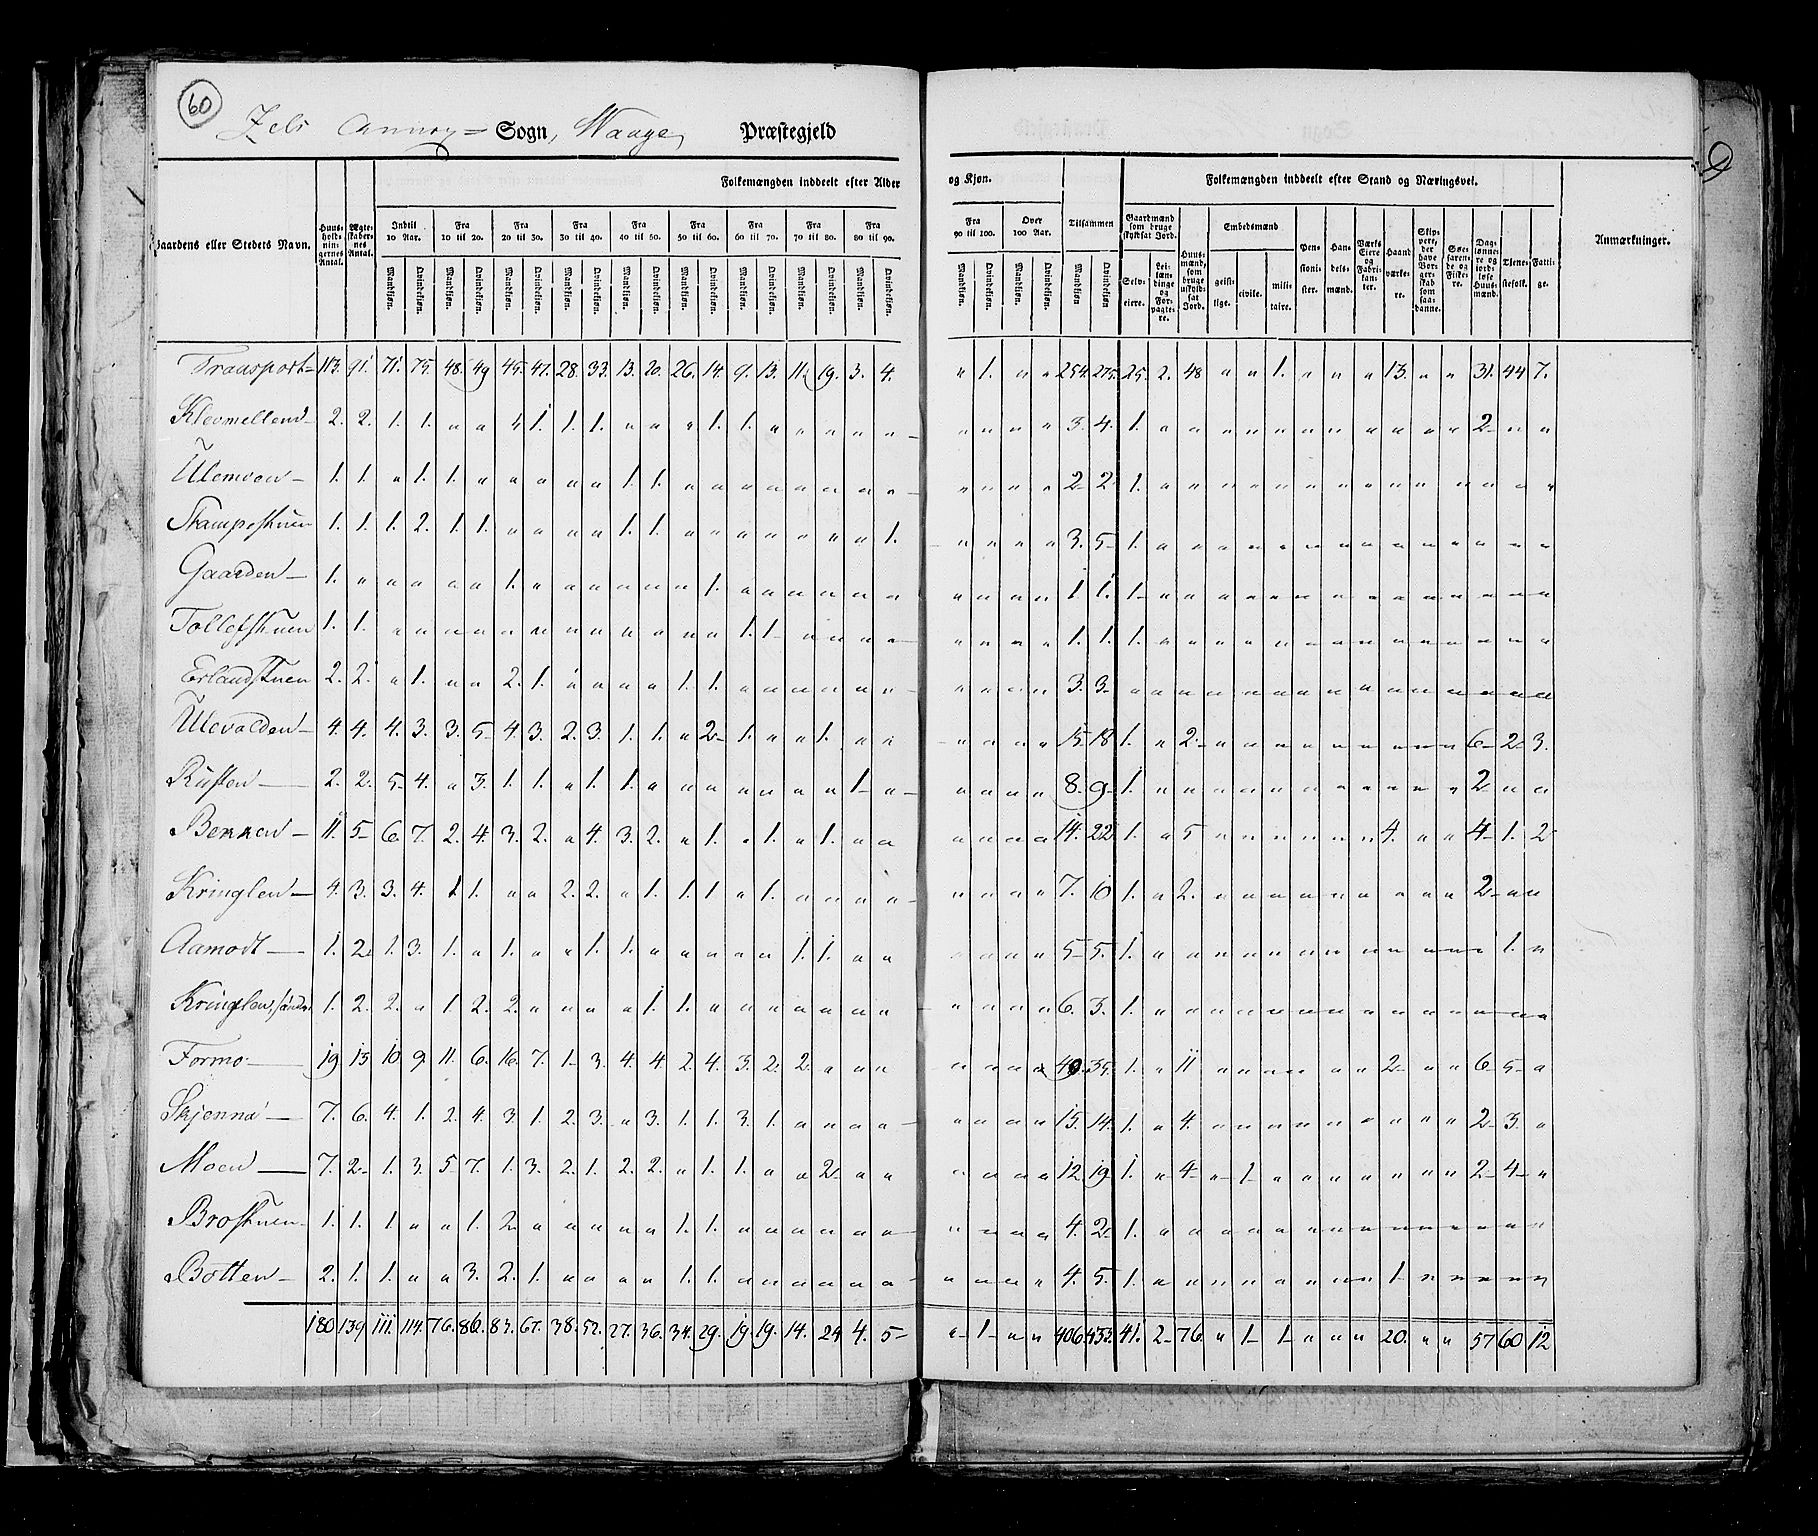 60
Sels Annex= Sogn, Waage, Præstegjeld
Folkemængden inddeelt efter Alder og Kjøn.
Folkemængden inddeelt efter Stand og Næringsvei.
Gaardens eller Stedets Navn. Huusholdningernes Antal. Ægteskabernes Antal. Indtil 10 Aar. Fra 10 til 20. Fra 20 til 30. Fra 30 til 40. Fra 40 til 50. Fra 50 til 60. Fra 60 til 70. Fra 70 til 80. Fra 80 til 90. Fra 90 til 100. Over 100 Aar. Tilsammen Gaardmænd som bruge skyldsat Jord. Huusmænd, som bruge uskyldsat Jord. Embedsmænd Pensionister. Handelsmænd. Værks Eiere og Fabrikanter. Haandværkere. Skippere, der have Borgerskab som saadanne. Søefarende og Fiskere. Daglønnere og jordløse Huusmænd. Tjenestefolk. Fattige. Anmærkninger.
Mandkjøn. Qvindekjøn. Mandkjøn. Qvindekjøn. Mandkjøn. Qvindekjøn. Mandkjøn. Qvindekjøn. Mandkjøn. Qvindekjøn. Mandkjøn. Qvindekjøn. Mandkjøn. Qvindekjøn. Mandkjøn. Qvindekjøn. Mandkjøn. Qvindekjøn. Mandkjøn. Qvindekjøn. Mandkjøn. Qvindekjøn. Mandkjøn Qvindekjøn Selveiere. Leilændinge og Forpagtere. geistlige. civile. militaire.
Transport= 113. 91. 71. 75. 48. 49 45. 47. 28. 33. 13. 20. 26. 14. 9. 13. 11. 19. 3. 4. " 1. " " 254. 275. 25. 2. 48 " " 1. " " " 13. " " 31. 44 7.
Klevmellend— 2. 2. 1. 1. " " " 1. 1. 1. " " " 1. 1. " " " " " " " " " 3. 4. 1. " " " " " " " " " " " 2— " "
Ulemoen— 1. 1. " 1. 1. " " " " " 1. 1. " " " " " " " " " " " " 2— 2. 1. " " " " " " " " " " " " " "
Stampestuen 1. 1. 1. 2. 1. 1. " " " " 1. 1. " " " " " " " 1. " " " " 3. 5— 1. " " " " " " " " " " " " " "
Gaarden— 1. " " " " " 1. " " " " " " 1. " " " " " " " " " " 1. 1. 1— " " " " " " " " " " " " " "
Tollefstuen 1. 1. " " " " " " " " " " " " 1. 1— " " " " " " " " 1. 1. 1. " " " " " " " " " " " " " "
Erlandstuen 2. 2. " 1. " " 2. 1. " " " " 1. 1. " " " " " " " " " " 3. 3. " " " " " " " " " " " " " " "
Ulevolden— 4. 4. 4. 3. 3. 5— 4. 3. 2. 3. 1. 1. " 2— 1. " " 1. " " " " " " 15. 18 1. " 2— " " " " " " " " " 6— 2— 3.
Rusten— 2. 2. 5— 4. " 3. 1. 1. " 1. 1. " " " " " " " 1— " " " " " 8. 9— 1. " " " " " " " " " " " 2— " "
Bennen— 11. 5— 6. 7. 2. 4. 3. 2. " 4. 3. 2. " 1. " 1. " 1. " " " " " " 14. 22 1. " 5 " " " " " " 4. " " 4— 1. 2
Kringlen— 4. 3. 3. 4. 1 1. " " 2. 2. " 1. 1. 1. " 1. " " " " " " " " 7. 10 1. " 2. " " " " " " " " " 2— " "
Aamodt— 1. 2. 1. 3. 1. " 1. " " 1. 1. " " " " " 1. 1. " " " " " " 5— 5. 1. " " " " " " " " " " " " 1. "
Kringlen, søndre 1. 2. 2. " 1. 2. 2. " " " " 1. 1. " " " " " " " " " " " 6. 3. 1. " " " " " " " " " " " " " "
Formo— 19 13 10 9. 11. 6. 16. 7. 1— 3. 4. 4. 2. 4. 3. 2. 2. " " " " " " " 49. 35. 1. " 11 " " " " " " 2— " " 6— 5— "
Skjenna— 7. 6. 4. 1. 2. 4. 3. 1. 2. 3. " 3. 1. 1. 3. 1. " " " " " " " " 15. 14. 1. " 4. " " " " " " " " " 2— 3. "
Moen— 7. 2— 1. 3. 5— 7. 1. 3. 2. 1. 2. 2. " 1. 1. " " 2— " " " " " " 12. 19— 1. " 4— " 1— " " " " " " " 2— 4— "
Brostuen— 1. 1. 1. " " 1. 2— " " " " " 1. 1. " " " " " " " " " " 4. 2— 1. " " " " " " " " " " " " " "
Botten— 2. 1. 1. " " 3. 2. 1. " " " " 1. 1. " " " " " " " " " " 4. 5. 1. " " " " " " " " 1— " " " " "
180 139 111. 114. 76. 86. 83. 67. 38. 52. 27. 36. 34. 29. 19. 19. 14. 24 4. 5— " 1— " " 406. 433. 41. 2— 76 " 1— 1— " " " 20. " " 57 60 12